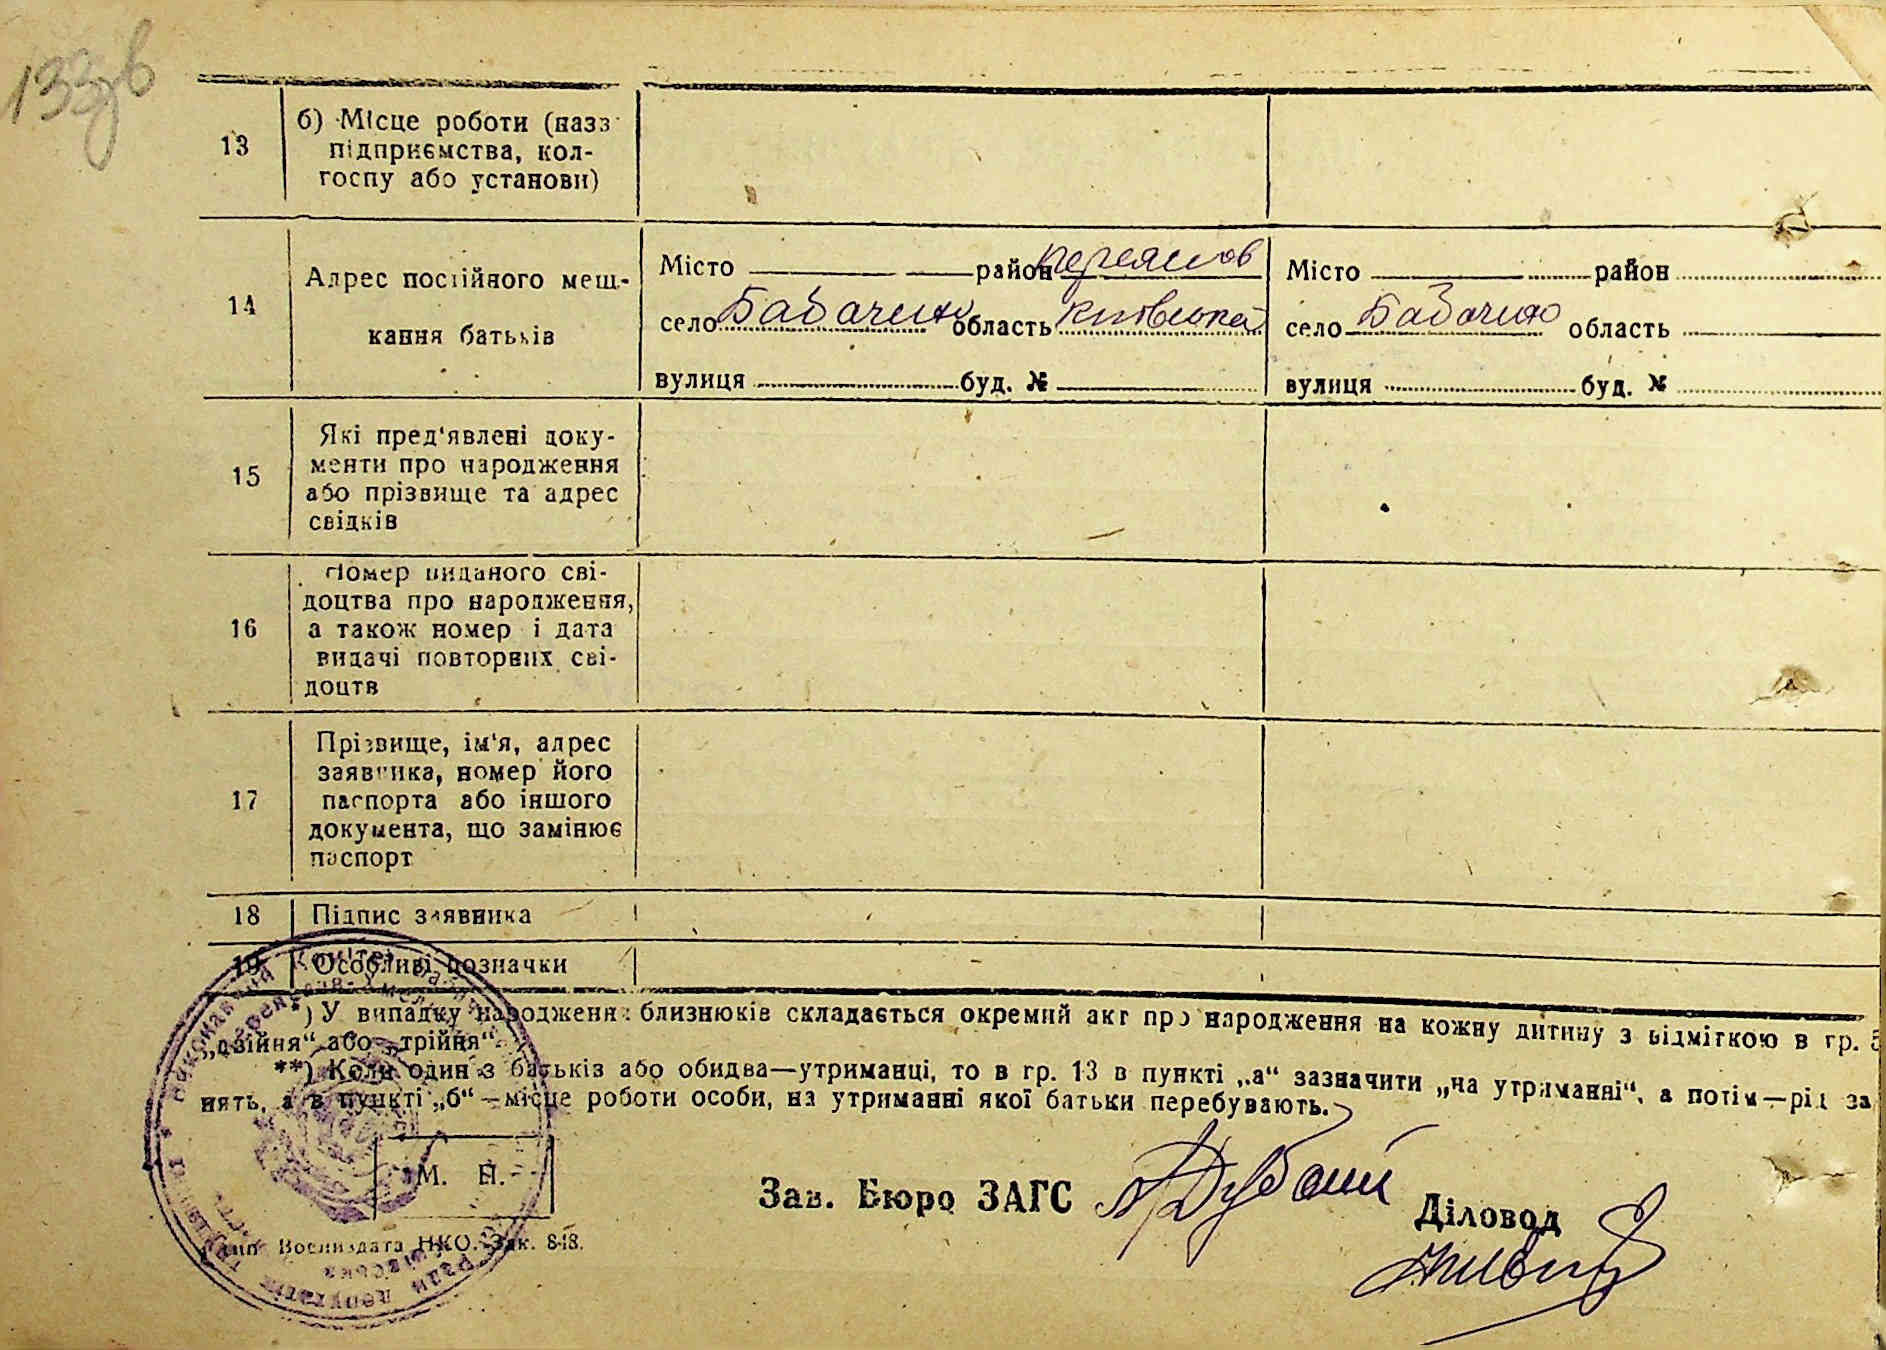 133зв
13
б) Місце роботи (назв
підприємства, кол-
госпу або установи)
14
Адрес постійного меш-
кання батьків
Місто район Переяслов
село Бабачиха область Київській
вулиця буд. №
Місто район
село Бабачиха область
вулиця буд. №
15
Які пред'явлені доку-
менти про народження
або прізвище та адрес
свідків
16
Номер виданого сві-
доцтва про народження,
а також номер і дата
видачі повторних сві-
доцтв
17
Прізвище, ім'я, адрес
заявника, номер його
паспорта або іншого
документа, що замінює
паспорт
18 Підпис заявника
19 Особливі позначки
*) У випадку народження близнюків складається окремий акт про народження на кожну дитину з відміткою в гр. 5
„двійня" або „трійня".
**) Коли один з батьків або обидва—утриманці, то в гр. 13 в пункті „а" зазначити „на утриманні", а потім—рід за
нять, а в пункті „б"—місце роботи особи, на утриманні якої батьки перебувають.
М. П.
Зав. Бюро ЗАГС
Діловод
Тип. Воениздата НКО. Зак. 848.